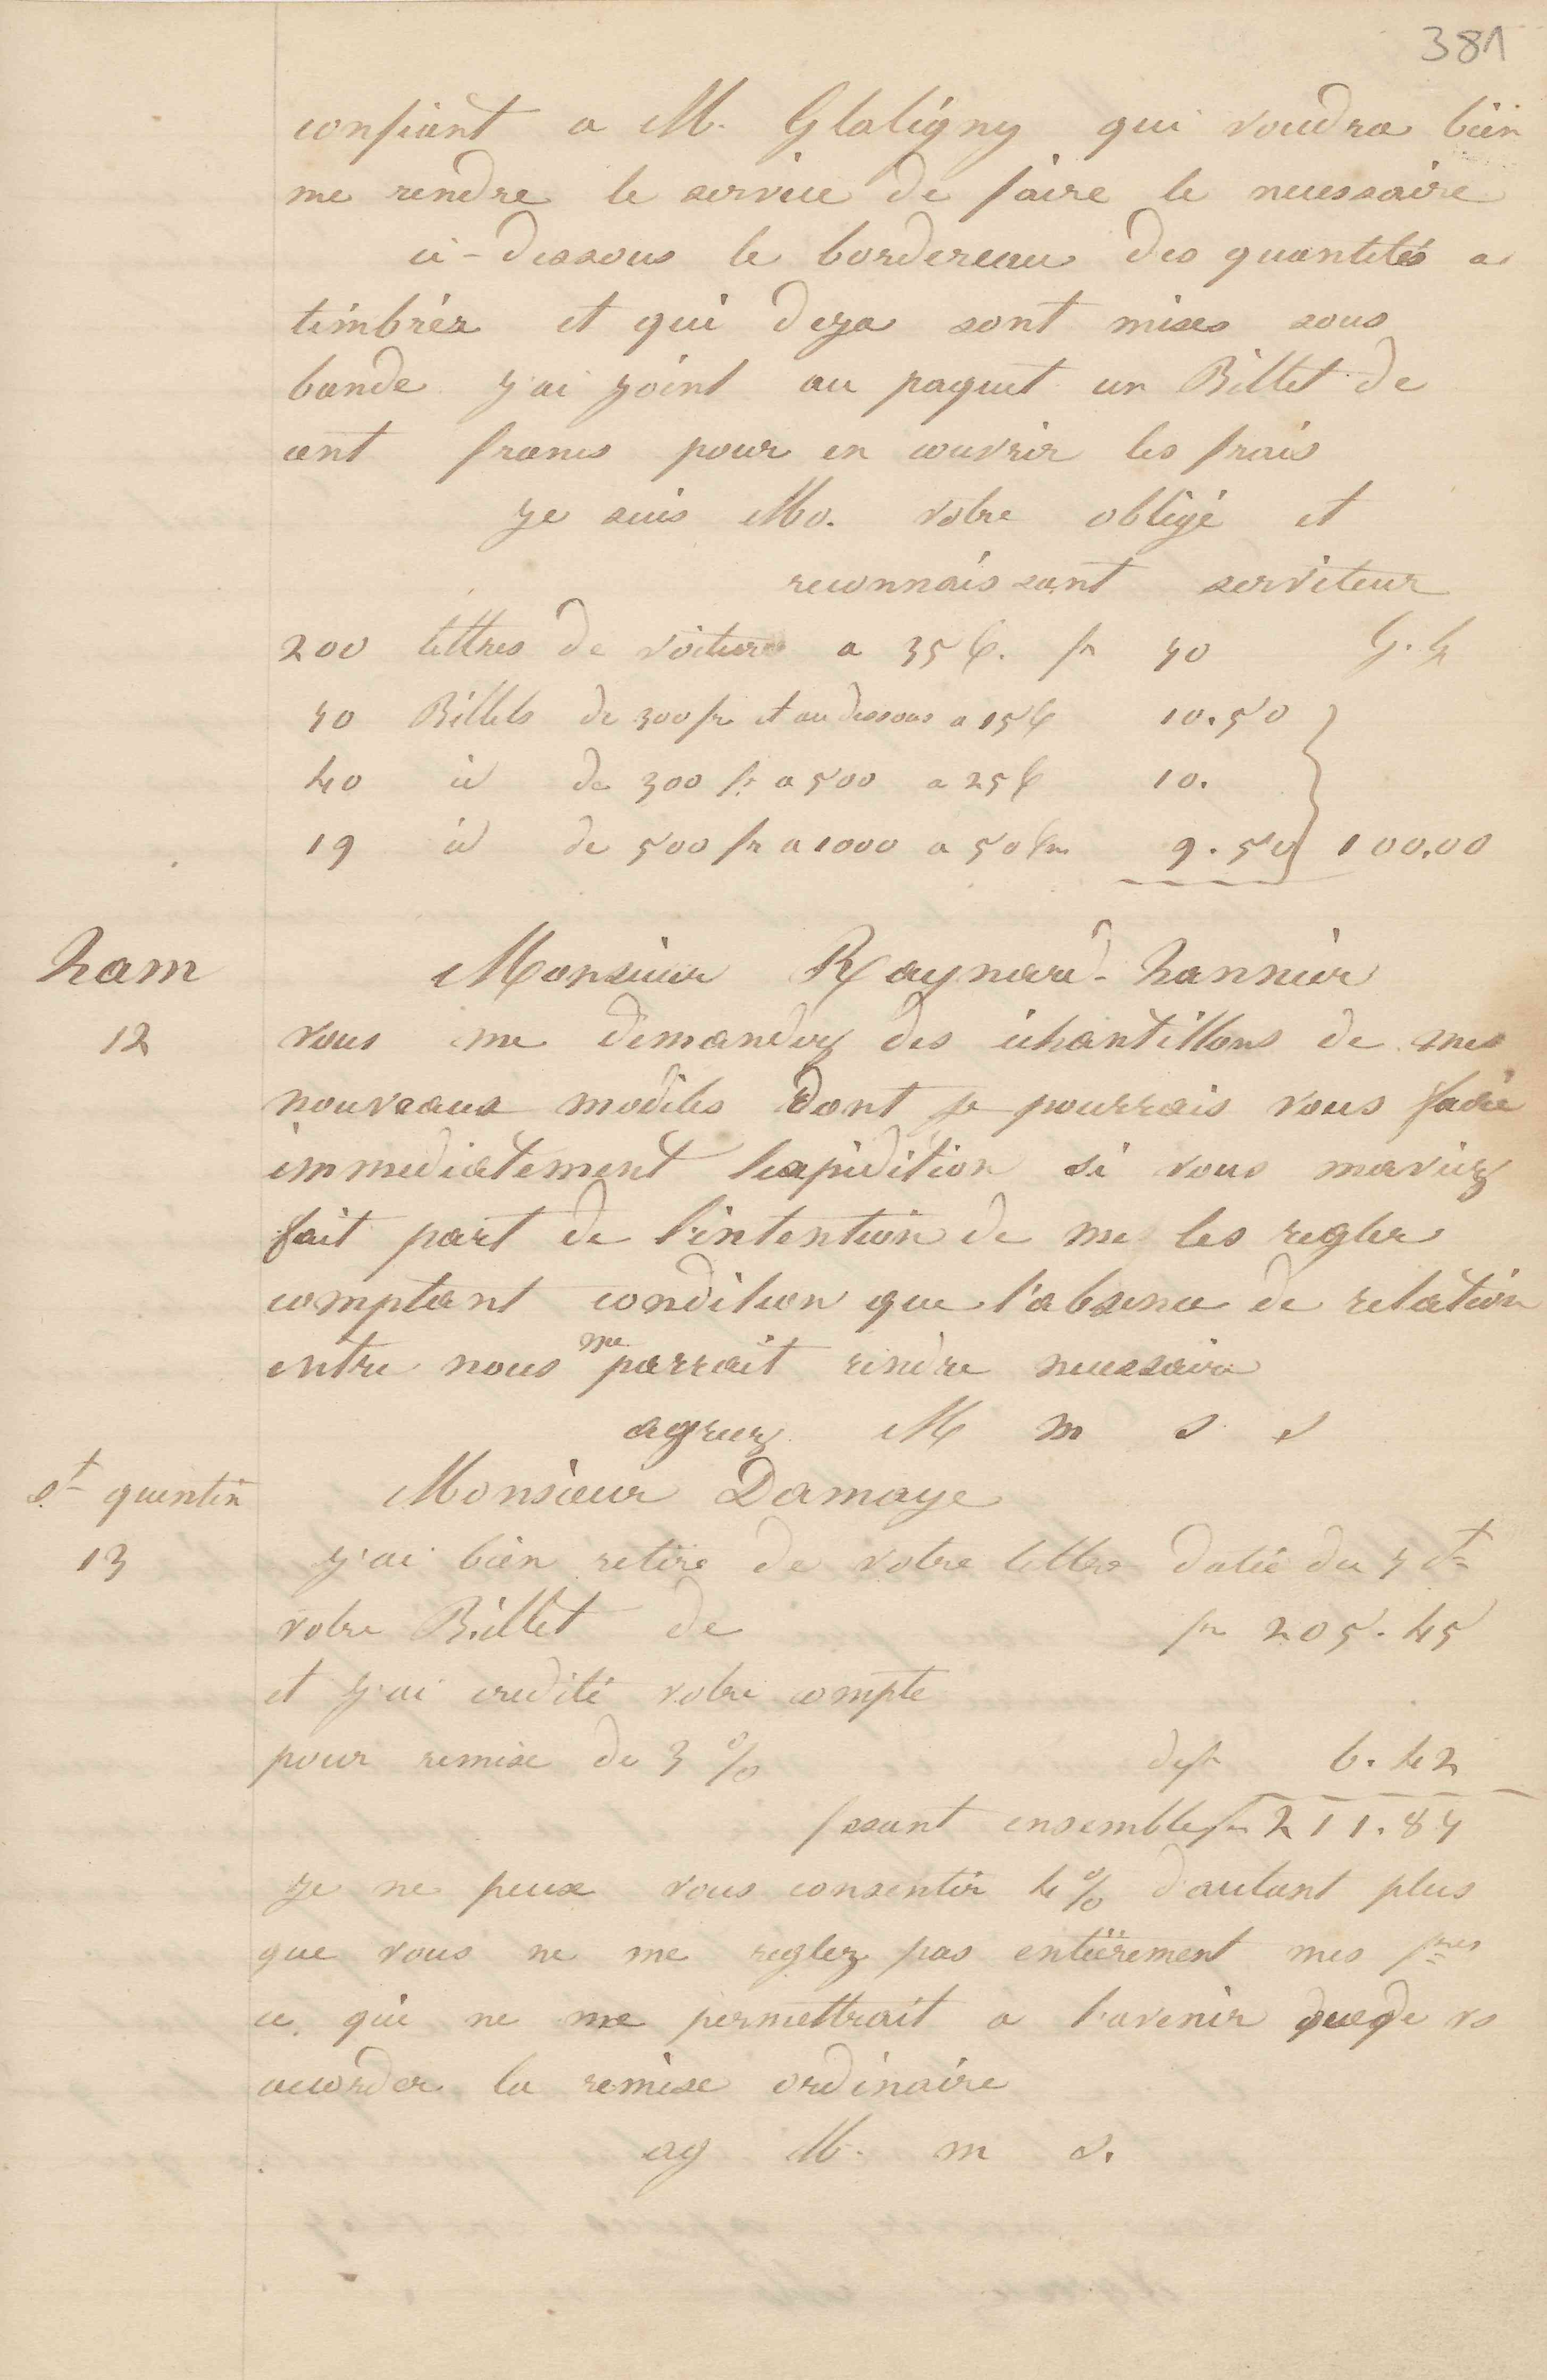 381
confiant a M. Glatigny qui voudra bien
me rendre le service de faire le necessaire
ci-dessous le bordereau des quantités a
timbrér et qui deja sont mises sous
bande j'ai joint au paquet un Billet de
cent francs pour en couvrir les frais
je suis Mo. votre obligé et
reconnaissant serviteur
200 lettres de voiture a 35 c. fr 70 G. G
70 Billets de 300 fr et au dessous a 15 c 10.50
40 id de 300 fr a 500 a 25 c 10.
19 id de 500 fr a 1000 a 50 cm 9.50 100.00
ham Monsieur Raynard-hannier
12 vous me demandez des échantillons de mes
nouveaux modèles dont je pourrais vous faire
immediatement lexpidition si vous maviez
fait part de l'intention de me les regler
comptant condition que l'absence de relation
entre nous me parrait rendre necessaire
agreez M m s s
st quentin Monsieur Damaye
13 j'ai bien retiré de votre lettre datée du 7 ct
votre Billet de fr 205.45
et j'ai credité votre compte
pour remise de 3 % de fr 6.42
fesant ensemble fr 211.87
je ne peux vous consentir 4 % d'autant plus
que vous ne me reglez pas entièrement mes fres
ce qui ne me permettrait a l'avenir que de vs
accorder la remise ordinaire
ag M. m s.